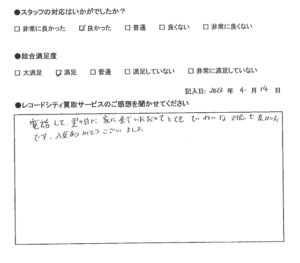 ●スタッフの対応はいかがでしたか？
□ 非常に良かった ☑ 良かった □ 普通 □ 良くない □ 非常に良くない
●総合満足度
□ 大満足 ☑ 満足 □ 普通 □ 満足していない □ 非常に満足していない
記入日: 2023 年 4 月 14 日
●レコードシティ買取サービスのご感想を聞かせてください
電話して、翌日に家に来ていただいてとても ていねいな対応で良かった
です。ありがとうございました